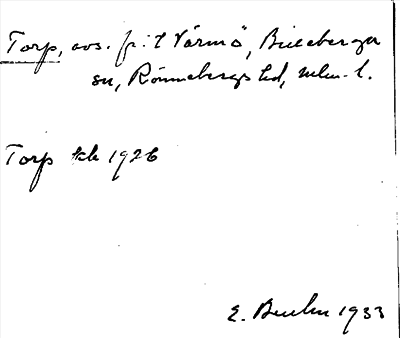 Torp, avs. fr. t Värmö, Billeberga
sn, Rönnebergs hd, mlm. l.
Torp tk 1926
E. 1933